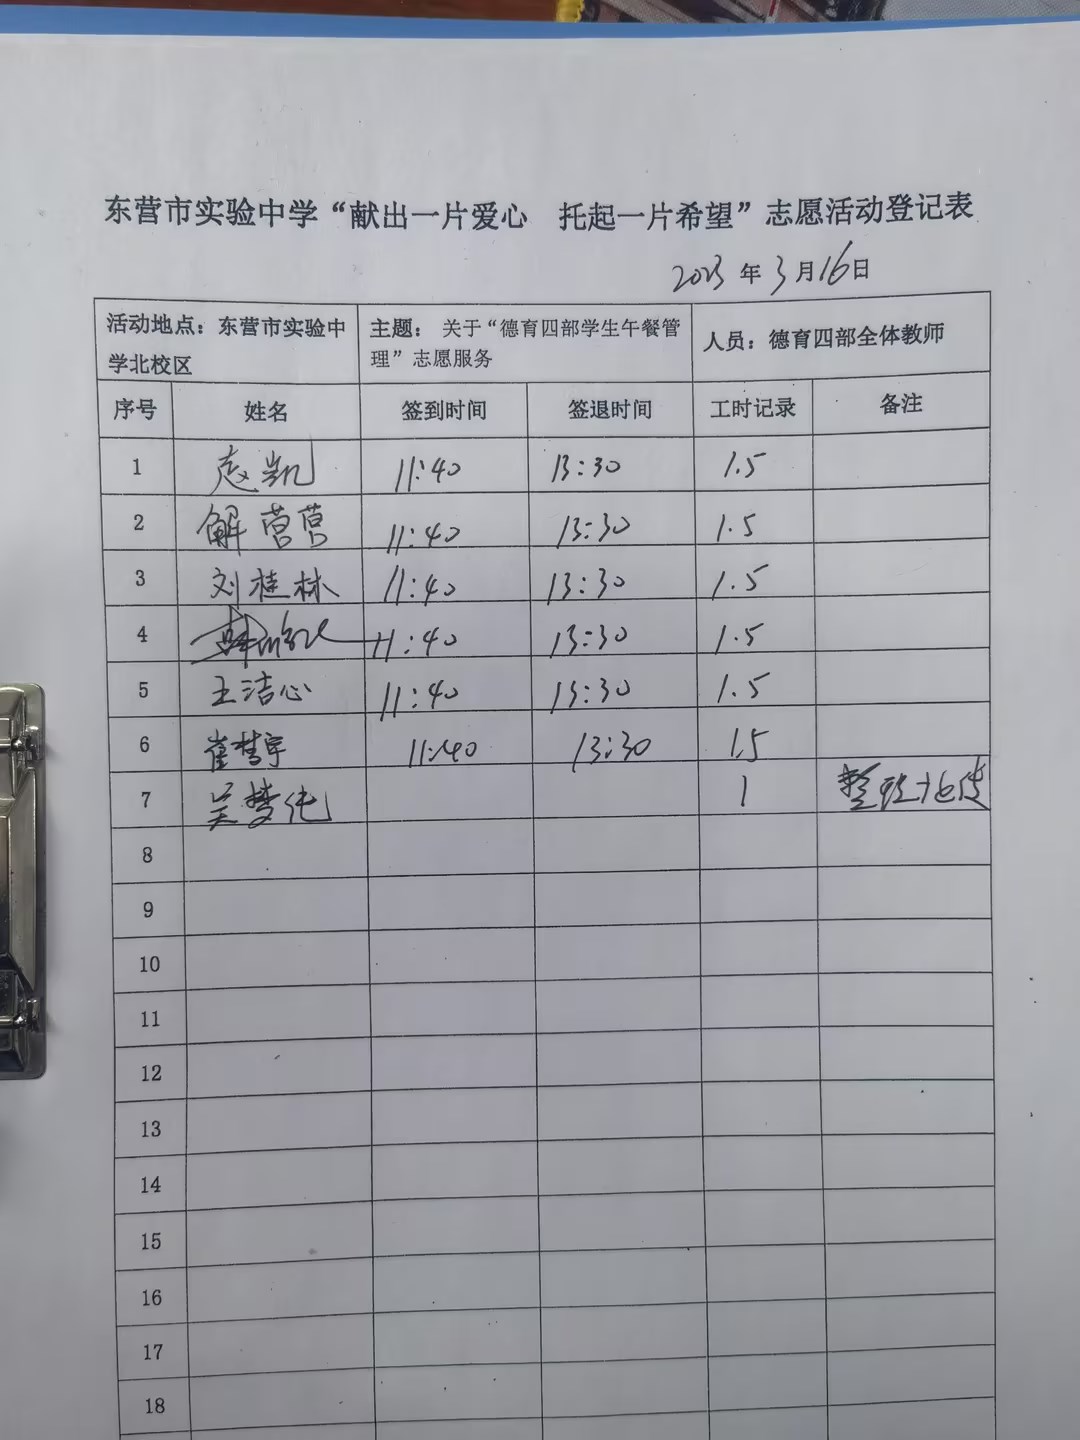 东营市实验中学“献出一片爱心 托起一片希望”志愿活动登记表
2023年3月16日
活动地点：东营市实验中学北校区 主题：关于“德育四部学生午餐管理”志愿服务 人员：德育四部全体教师
序号 姓名 签到时间 签退时间 工时记录 备注
1 志凯 11:40 13:30 1.5
2 解营营 11:40 13:30 1.5
3 刘桂林 11:40 13:30 1.5
4 11:40 13:30 1.5
5 王洁心 11:40 13:30 1.5
6 崔梦宇 11:40 13:30 1.5
7 吴梦 1 整理
8
9
10
11
12
13
14
15
16
17
18